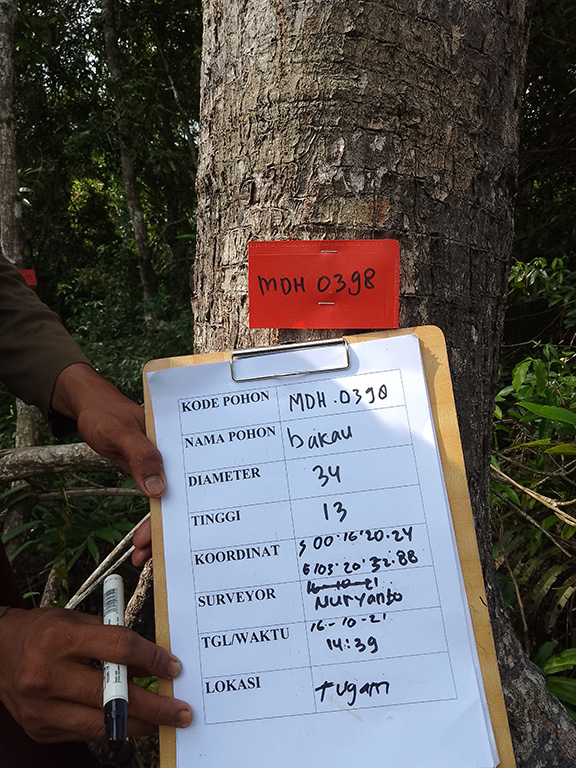 MDH 0398
KODE POHON MDH.0398
NAMA POHON bakau
DIAMETER 34
TINGGI 13
KOORDINAT S 00.16'20.24
E103.20'32.88
SURVEYOR 16-10-21
Nuryanto
TGL/WAKTU 16-10-21
14:39
LOKASI tugam